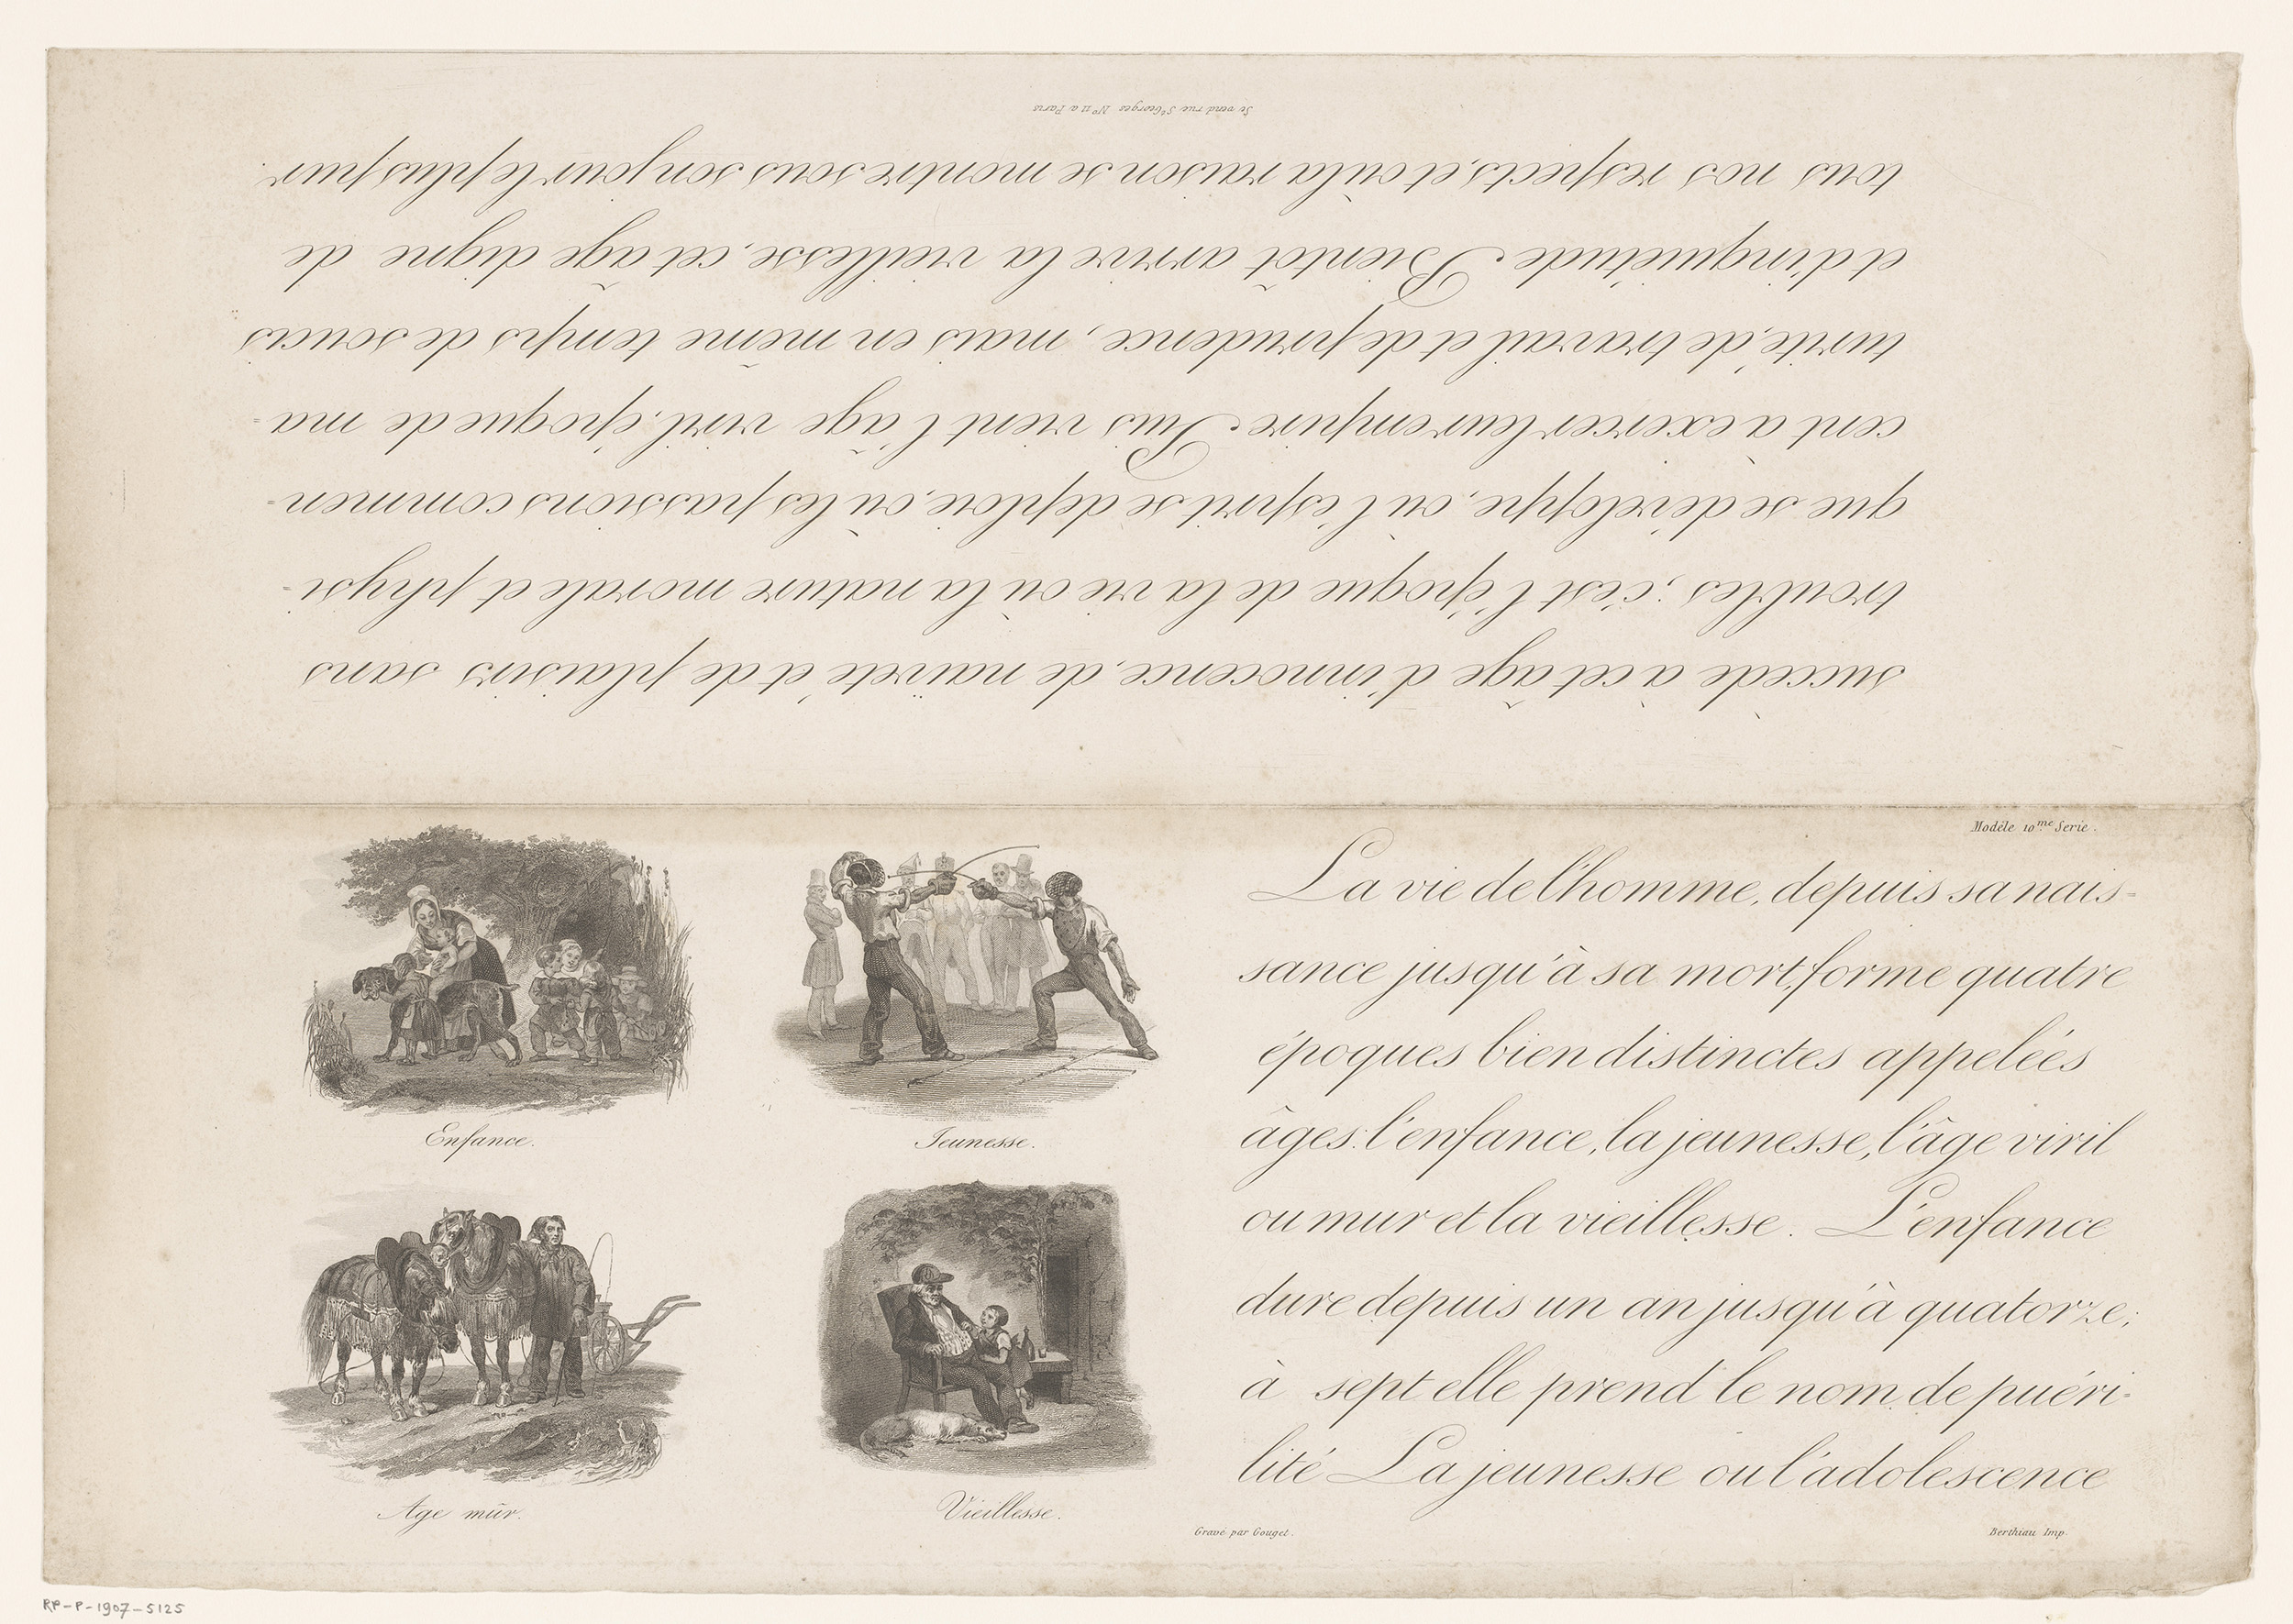 Modéle 10me Serie.
La vie de l'homme, depuis sa nais-
sance jusqu'à sa mort, forme quatre
époques bien distinctes appelées
âges: l'enfance, la jeunesse, l'âge viril
ou mur et la vieillesse. L'enfance
dure depuis un an jusqu'à quatorze;
à sept elle prend le nom de puéri-
lité La jeunesse ou l'adolescence
Gravé par Gouget.
Berthiau Imp.
Enfance.
Jeunesse.
Age mûr.
Vieillesse.
succède à cet âge d'innocence, de naïveté et de plaisirs sans
troubles; c'est l'époque de la vie où la nature morale et physi-
que se développe, où l'esprit se déploie, où les passions commen-
cent à exercer leur empire Puis vient l'âge viril, époque de ma-
turité, de travail et de prudence, mais en même temps de soucis
et d'inquiétude Bientôt arrive la vieillesse, cet âge digne de
tous nos respects, et où la raison se montre sous son jour le plus pur.
Se vend rue St Georges No 11 a Paris
RP-P-1907-5125